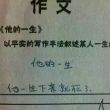 作文
《他的一生》
以平实的写作手法叙述某人一生
他的一生
他一生下来就死了